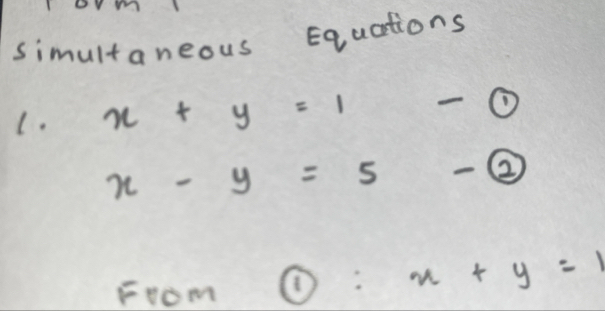 Form 1
simultaneous Equations
1. x + y = 1 - ①
x - y = 5 - ②
From ① : x + y = 1